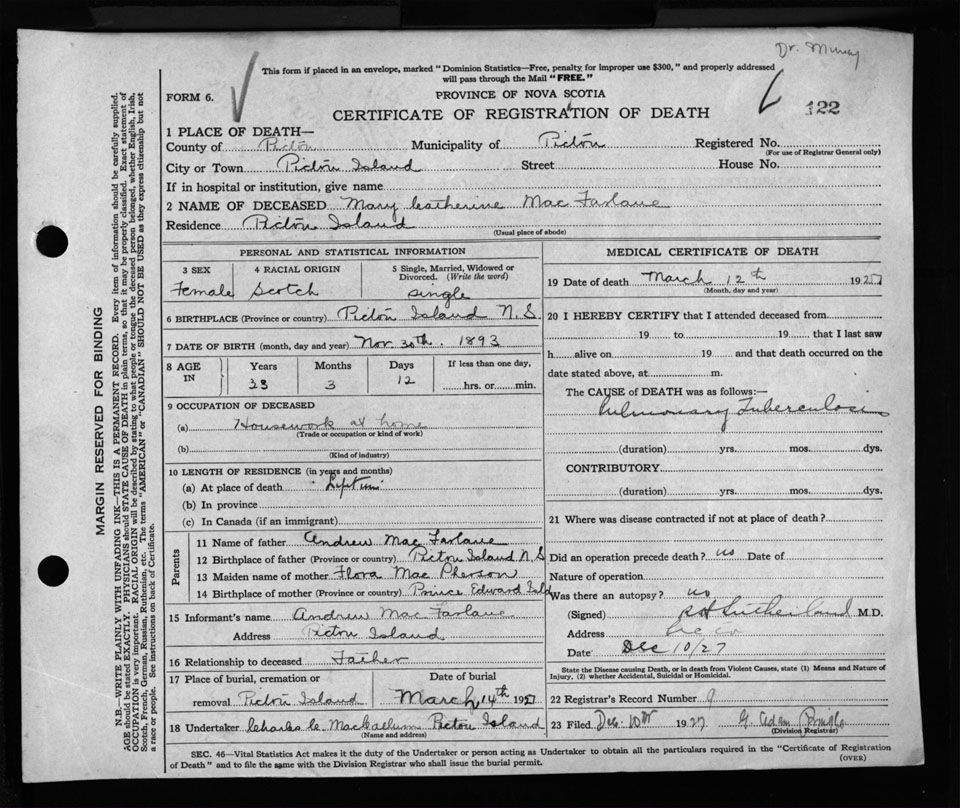 Dr. Murray
This form if placed in an envelope, marked "Dominion Statistics—Free, penalty for improper use $300," and properly addressed
will pass through the Mail "FREE."
FORM 6.
PROVINCE OF NOVA SCOTIA
CERTIFICATE OF REGISTRATION OF DEATH
122
1 PLACE OF DEATH—
County of Pictou Municipality of Pictou Registered No.
(For use of Registrar General only)
City or Town Pictou Island Street House No.
If in hospital or institution, give name
2 NAME OF DECEASED Mary Catherine MacFarlane
Residence Pictou Island
(Usual place of abode)
MARGIN RESERVED FOR BINDING
N.B.—WRITE PLAINLY WITH UNFADING INK—THIS IS A PERMANENT RECORD. Every item of information should be carefully supplied.
AGE should be stated EXACTLY. PHYSICIANS should STATE CAUSE OF DEATH in plain terms, so that it may be properly classified. Exact statement of
OCCUPATION is very important. RACIAL ORIGIN will be described by stating to what people or tongue the deceased person belonged, whether English, Irish,
Scotch, French, German, Russian, Ruthenian, etc. The terms "AMERICAN" or "CANADIAN" SHOULD NOT BE USED as they express citizenship but not
a race or people. See instructions on back of Certificate.
PERSONAL AND STATISTICAL INFORMATION
3 SEX
Female
4 RACIAL ORIGIN
Scotch
5 Single, Married, Widowed or
Divorced. (Write the word)
single
6 BIRTHPLACE (Province or country) Pictou Island N.S.
7 DATE OF BIRTH (month, day and year) Nov. 30th. 1893
8 AGE
IN
Years Months Days If less than one day,
33 3 12 hrs. or min.
9 OCCUPATION OF DECEASED
(a) Housework at home
(Trade or occupation or kind of work)
(b)
(Kind of industry)
10 LENGTH OF RESIDENCE (in years and months)
(a) At place of death Lifetime
(b) In province
(c) In Canada (if an immigrant)
Parents
11 Name of father Andrew MacFarlane
12 Birthplace of father (Province or country) Pictou Island N.S
13 Maiden name of mother Flora MacPherson
14 Birthplace of mother (Province or country) Prince Edward Isld
15 Informant's name Andrew MacFarlane
Address Pictou Island
16 Relationship to deceased Father
17 Place of burial, cremation or Date of burial
removal Pictou Island March 14th 1927
18 Undertaker Charles C. MacCallum Pictou Island
(Name and address)
MEDICAL CERTIFICATE OF DEATH
19 Date of death March 12th 1927
(Month, day and year)
20 I HEREBY CERTIFY that I attended deceased from
19 to 19 that I last saw
h alive on 19 and that death occurred on the
date stated above, at m.
The CAUSE of DEATH was as follows:—
Pulmonary Tuberculosis
(duration) yrs. mos. dys.
CONTRIBUTORY
(duration) yrs. mos. dys.
21 Where was disease contracted if not at place of death?
Did an operation precede death? no Date of
Nature of operation
Was there an autopsy? no
(Signed) R H Sutherland M.D.
Address
Date Dec 10/27
State the Disease causing Death, or in death from Violent Causes, state (1) Means and Nature of
Injury, (2) whether Accidental, Suicidal or Homicidal.
22 Registrar's Record Number 9
23 Filed Dec. 10th 1927 G. Adam Pringle
(Division Registrar)
SEC. 46—Vital Statistics Act makes it the duty of the Undertaker or person acting as Undertaker to obtain all the particulars required in the "Certificate of Registration
of Death" and to file the same with the Division Registrar who shall issue the burial permit.
(OVER)